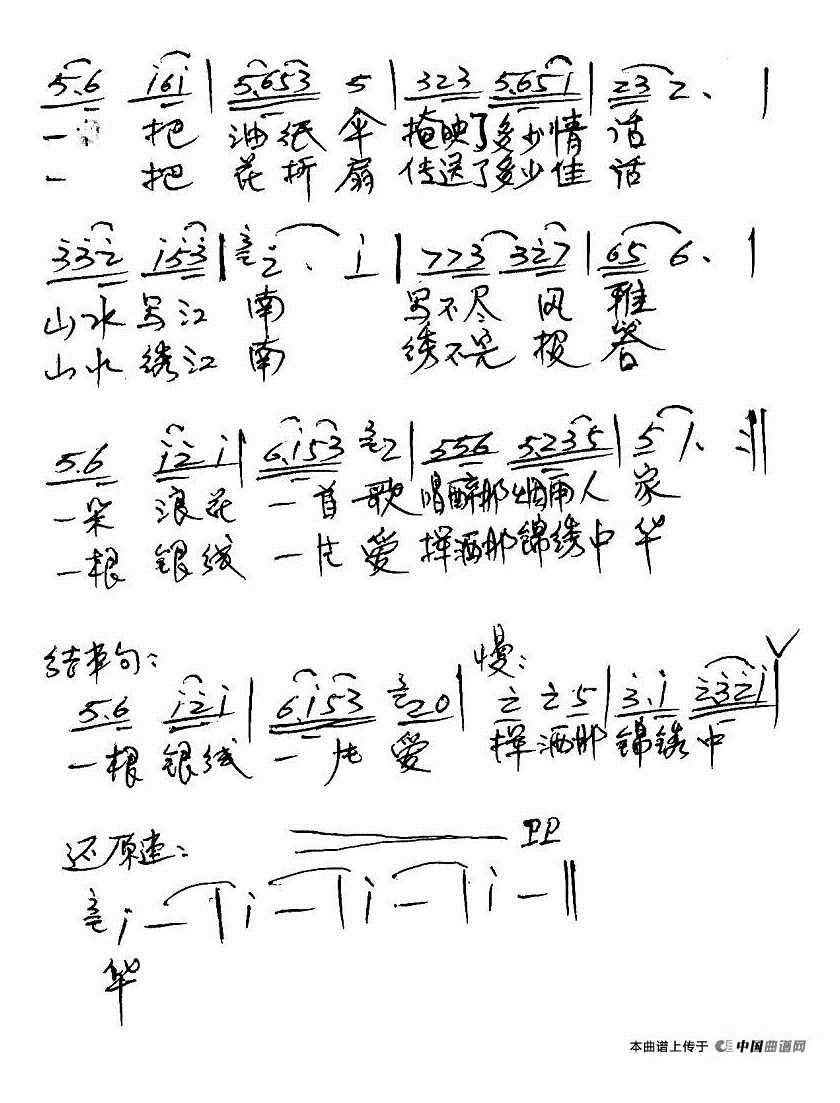 5.6 i6i | 5.653 5 | 323 5.651 | 23 2. |
一 把 油纸 伞 掩映了多少情 话
一 把 花折 扇 传送了多少佳 话
332 i53 | 2. i | 773 327 | 65 6. |
山水写江 南 写不尽 风 雅
山水绣江 南 绣不完 报 答
5.6 i2i | 6.i53 2 | 556 5.235 | 5 1. :‖
一朵 浪花 一首 歌 唱醉那烟雨人 家
一根 银线 一片 爱 挥洒那锦绣中 华
结束句: 慢:
5.6 i2i | 6.i53 20 | 2 25 | 3.i 232i |
一根 银线 一片 爱 挥 洒那 锦绣 中
还原速: PP
i — | i — | i — | i — ‖
华
本曲谱上传于 中国曲谱网